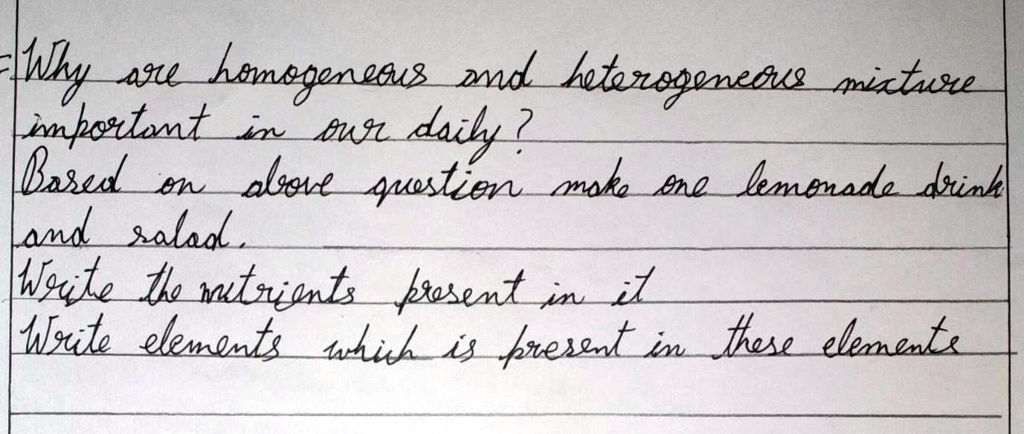 Why are homogeneous and heterogeneous mixture
important in our daily?
Based on above question make one lemonade drink
and salad.
Write the nutrients present in it
Write elements which is present in these elements